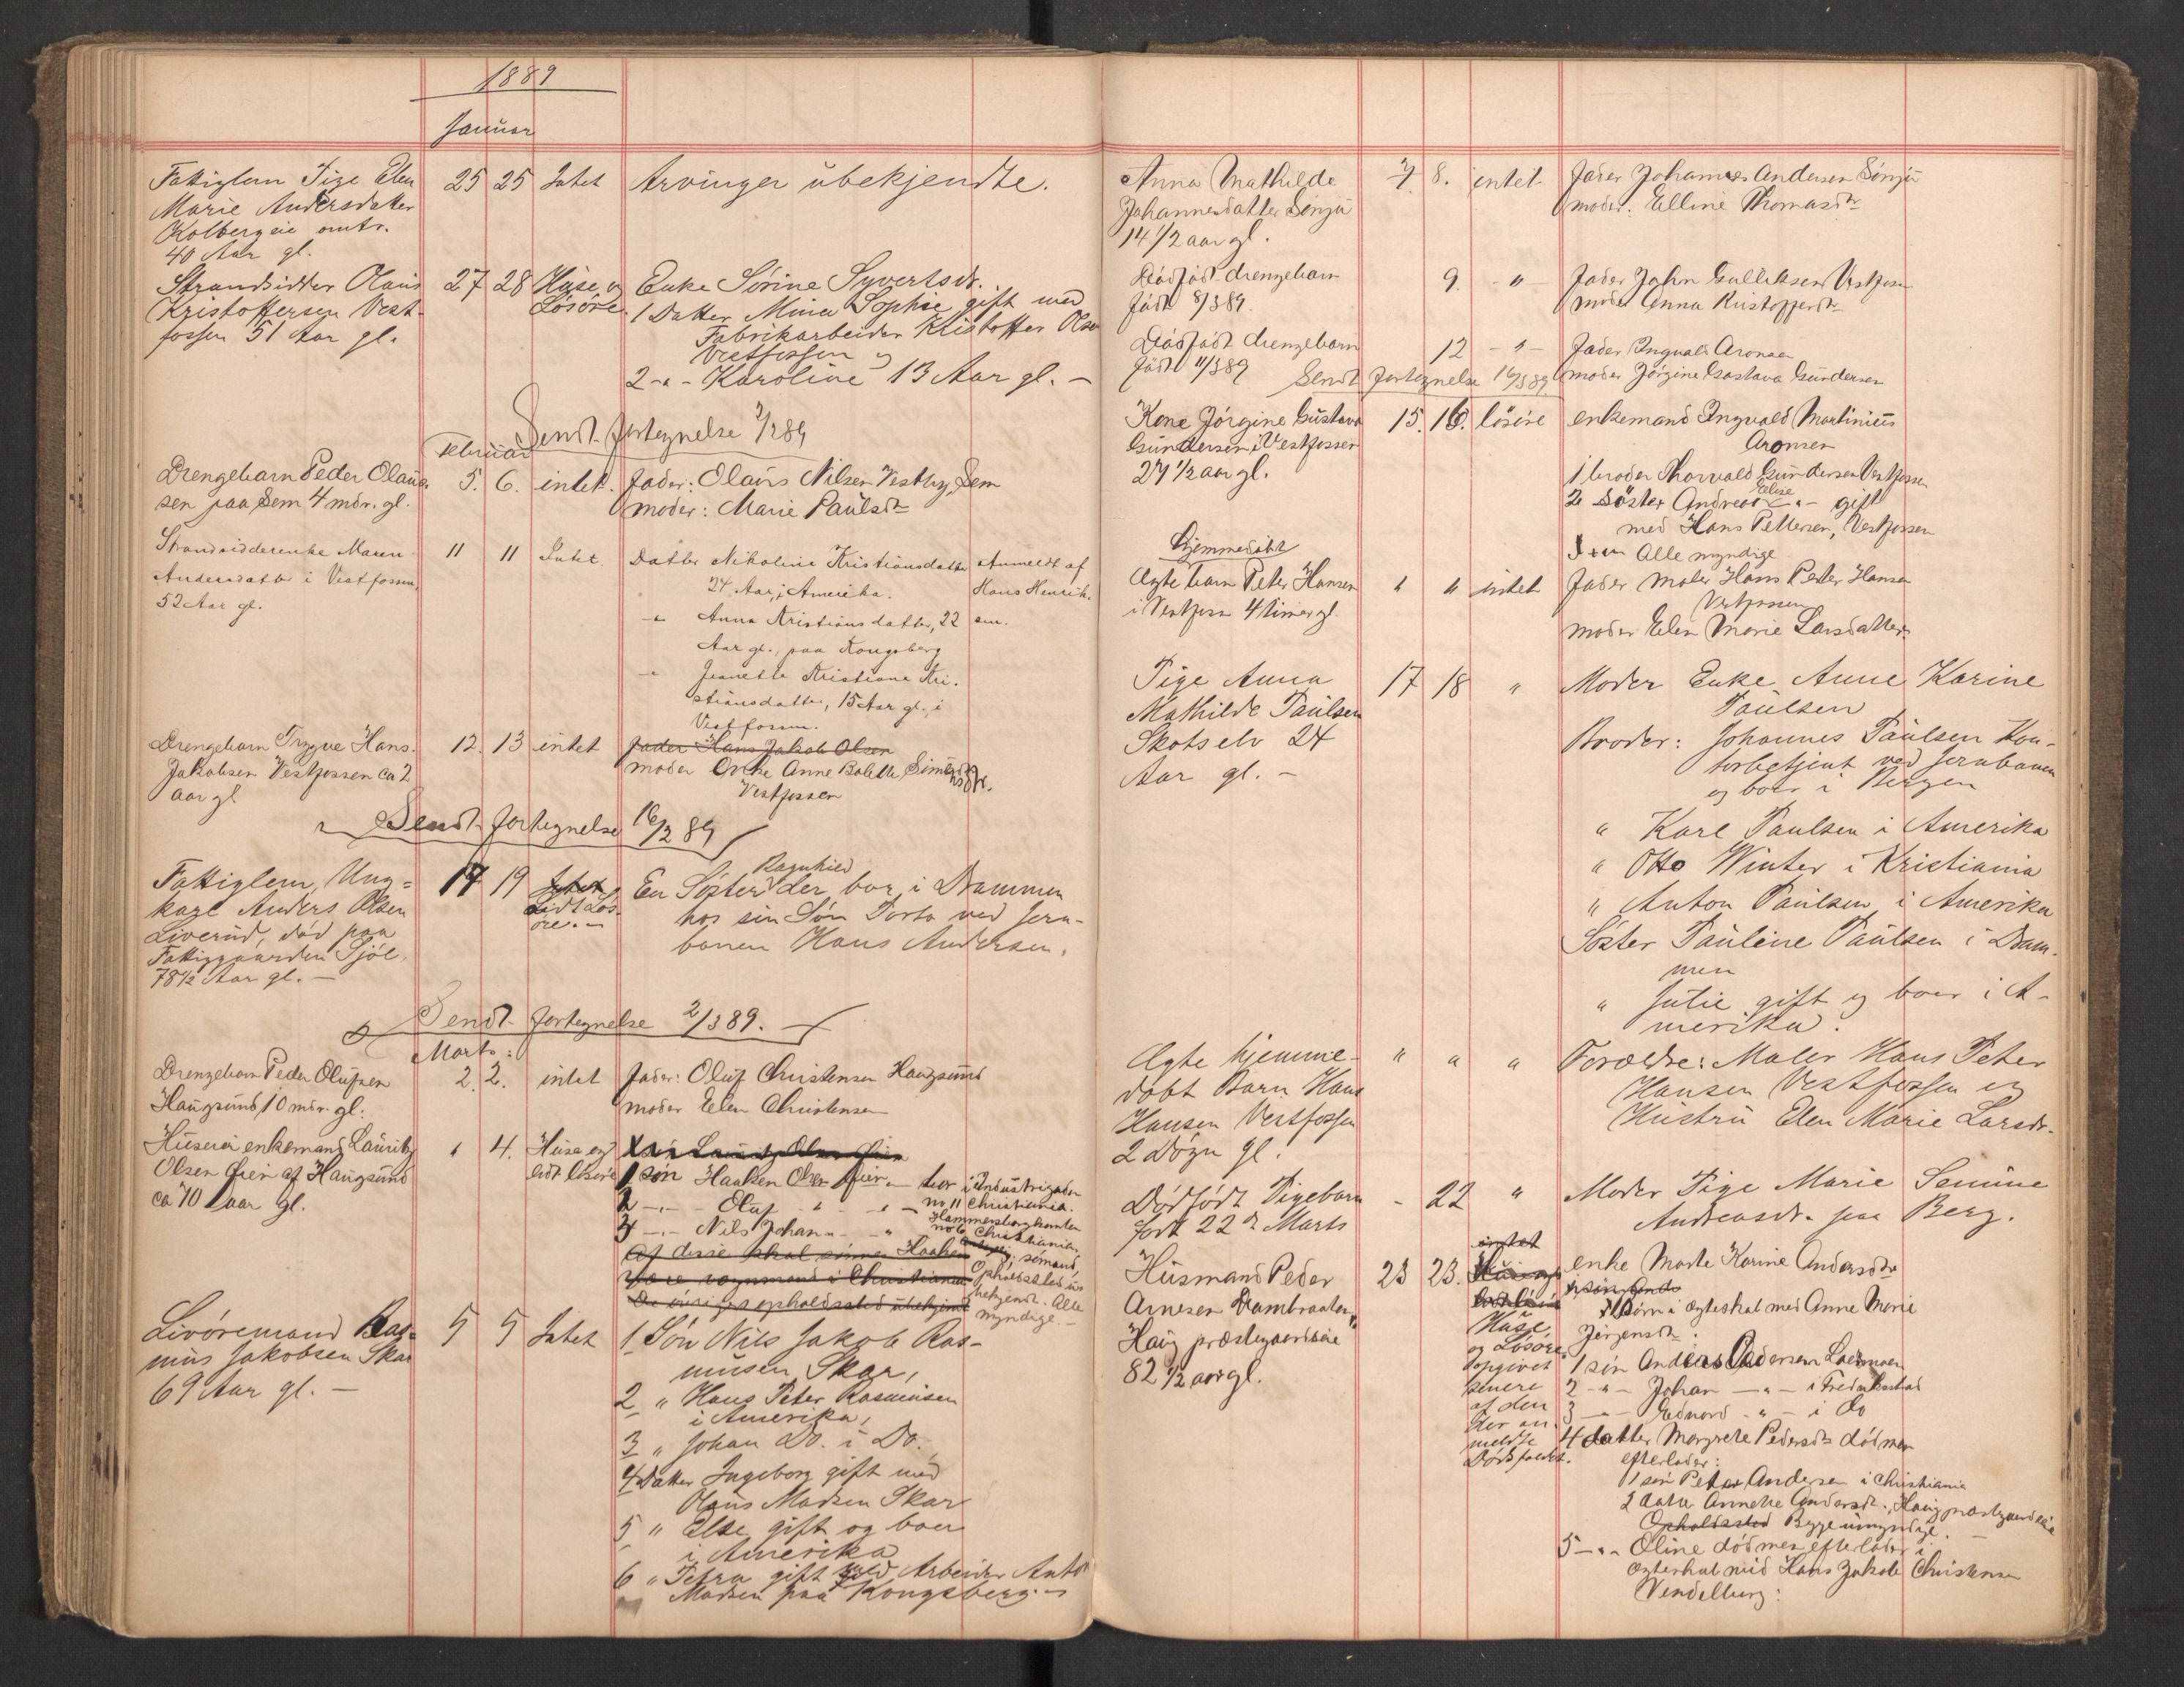 1889
Januar
Fattiglem Pige Elen
Marie Andersdatter
Kolbergeie omtr.
40 Aar gl.
25 25 Intet Arvinger ubekjendte.
Strandsidder Olaus
Kristoffersen Vest-
fossen 51 Aar gl.
27 28 Huse og
Løsøre.
Enke Sørine Syvertsdr.
1 Datter Mina Sophie gift med
Fabrikarbeider Kristoffer Olsen
Vestfossen og
2 -"- Karoline 13 Aar gl. -
Sendt fortegnelse 2/2 89
Februar
Drengebarn Peder Olaus-
sen paa Sem 4 mdr. gl.
5. 6. intet. fader: Olaus Nilsen Vestby, Sem
moder: Marie Paulsdr
Strandsidderenke Maren
Andersdatter i Vestfossen,
52 Aar gl.
11 11 Intet.
Datter Nikoline Kristiansdatter
24 Aar, i Amerika.
-"- Anna Kristiansdatter, 22
Aar gl., paa Kongsberg
-"- Jeanette Kristiane Kri-
stiansdatter, 15 Aar gl., i
Vestfossen.
Anmeldt af
Hans Henrik-
sen.
Drengebarn Trygve Hans
Jakobsen Vestfossen ca 2
aar gl
12. 13 intet fader Hans Jakob Olsen
moder Enke Anne Bolette Simensdtr.
Vestfossen
Sendt fortegnelse 16/2 89
Fattiglem, Ung-
karl Anders Olsen
Liverud, død paa
Fattiggaarden Sjøl,
78 1/2 Aar gl. -
17 19 Intet
Lidt Løs-
øre. -
En Søster Ragnhild der bor i Drammen
hos sin Søn Portø ved Jern-
banen Hans Andersen.
Sendt fortegnelse 2/3 89.
Marts:
Drengebarn Peder Olufsen
Haugsund, 10 mdr. gl.
2. 2. intet fader: Oluf Christensen Haugsund
moder Elen Christensen
Huseier enkemand Lauritz
Olsen Øien af Haugsund
ca 70 aar gl.
" 4. Huse og
lidt løsøre
1 søn Haaken Olsen Øien - bor i Industrigaden
no 11 Christiania.
2 -"- Oluf " - " -
3 -"- Nils Johan -"- "
Hammersborgbakken
no 6 Christiania
sømand,
Opholdssted ube-
kjendt. Alle
myndige. -
Af disse skal sønnen Haaken
være vognmand i Christiania
De øvriges opholdssted ubekjent
Livøremand Ras-
mus Jakobsen Skar
69 Aar gl. -
5 5 Intet
1 Søn Nils Jakob Ras-
musen Skar,
2 " Hans Peter Rasmusen
i Amerika,
3 " Johan Do. i Do.
4 Datter Ingeborg gift med
Olaus Madsen Skar
5 " Else gift og boer
i Amerika
6 " Petra gift med Arbeider Anton
Madsen paa Kongsberg. -
Anna Mathilde
Johannesdatter Sønju
14 1/2 aar gl.
7. 8. intet fader Johannes Andersen Sønju
moder: Elline Thomasdr
Dødfødt drengebarn
født 8/3 89.
9. -"- fader John Gulliksen Vestfossen
moder Anna Kristoffersdr
Dødfødt drengebarn
født 11/3 89
12 -"- fader Ingvald Aronsen
moder Jørgine Gustava Gundersen
Sendt fortegnelse 16/3 89.
Kone Jørgine Gustava
Gundersen i Vestfossen
27 1/2 aar gl.
15. 16. løsøre enkemand Ingvald Martinius
Aronsen
1 broder Thorvald Gundersen Vestfossen
2 Søster Andrea Elise -"- gift
med Hans Pettersen, Vestfossen
Alle myndige
Hjemmedøbt
Ægte barn Peter Hansen
i Vestfossen 4 timer gl.
" " intet fader maler Hans Peter Hansen
Vestfossen
moder Elen Marie Larsdatter
Pige Anna
Mathilde Paulsen
Skotselv 24
Aar gl. -
17 18 "
Moder Enke Anne Karine
Paulsen
Broder: Johannes Paulsen Kon-
torbetjent ved Jernbanen
og boer i Bergen
" Karl Paulsen i Amerika
" Otto Winter i Kristiania
" Anton Paulsen i Amerika
Søster Pauline Paulsen i Dram-
men
" Julie gift og boer i A-
merika.
Ægte hjemme-
døbt Barn Hans
Hansen Vestfossen
2 Døgn gl.
" " " Forældre: Maler Hans Peter
Hansen Vestfossen og
Hustru Elen Marie Larsdr.
Dødfødt Pigebarn
født 22de Marts
- 22 " Moder Pige Marie Semine
Andreasdr. paa Berg.
Husmand Peder
Arnesen Dambraaten,
Haug præstegaardseie
82 1/2 aar gl.
23 23. intet
Huse
og Løsøre
opgivet
senere
af den
der an-
meldte
Dødsfaldet.
enke Marte Karine Andersdr
Børn i ægteskab med Anne Marie
Jørgensdr.
1 søn Anders Pedersen Loesmoen
2 -"- Johan -"- i Fredrikstad
3 -"- Edvard -"- i do
4 datter Margrete Pedersdr død men
efterlader:
1 søn Peter Andersen i Christiania
2 datter Annette Andersdr., Haug præstegaardseie
Opholdssted Begge umyndige.
5 -"- Oline død men efterlader i
ægteskab med Hans Jakob Christensen
Vendelborg: